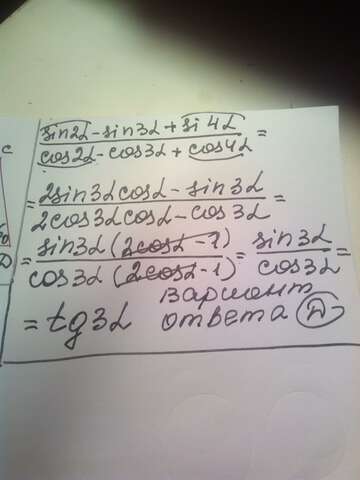 sin2α - sin3α + si 4α
cos2α - cos3α + cos4α =
= 2sin3α cosα - sin3α
2cos3α cosα - cos3α =
= sin3α (2cosα - 1)
cos3α (2cosα - 1) = sin3α
cos3α =
= tg3α Вариант
ответа Д
c